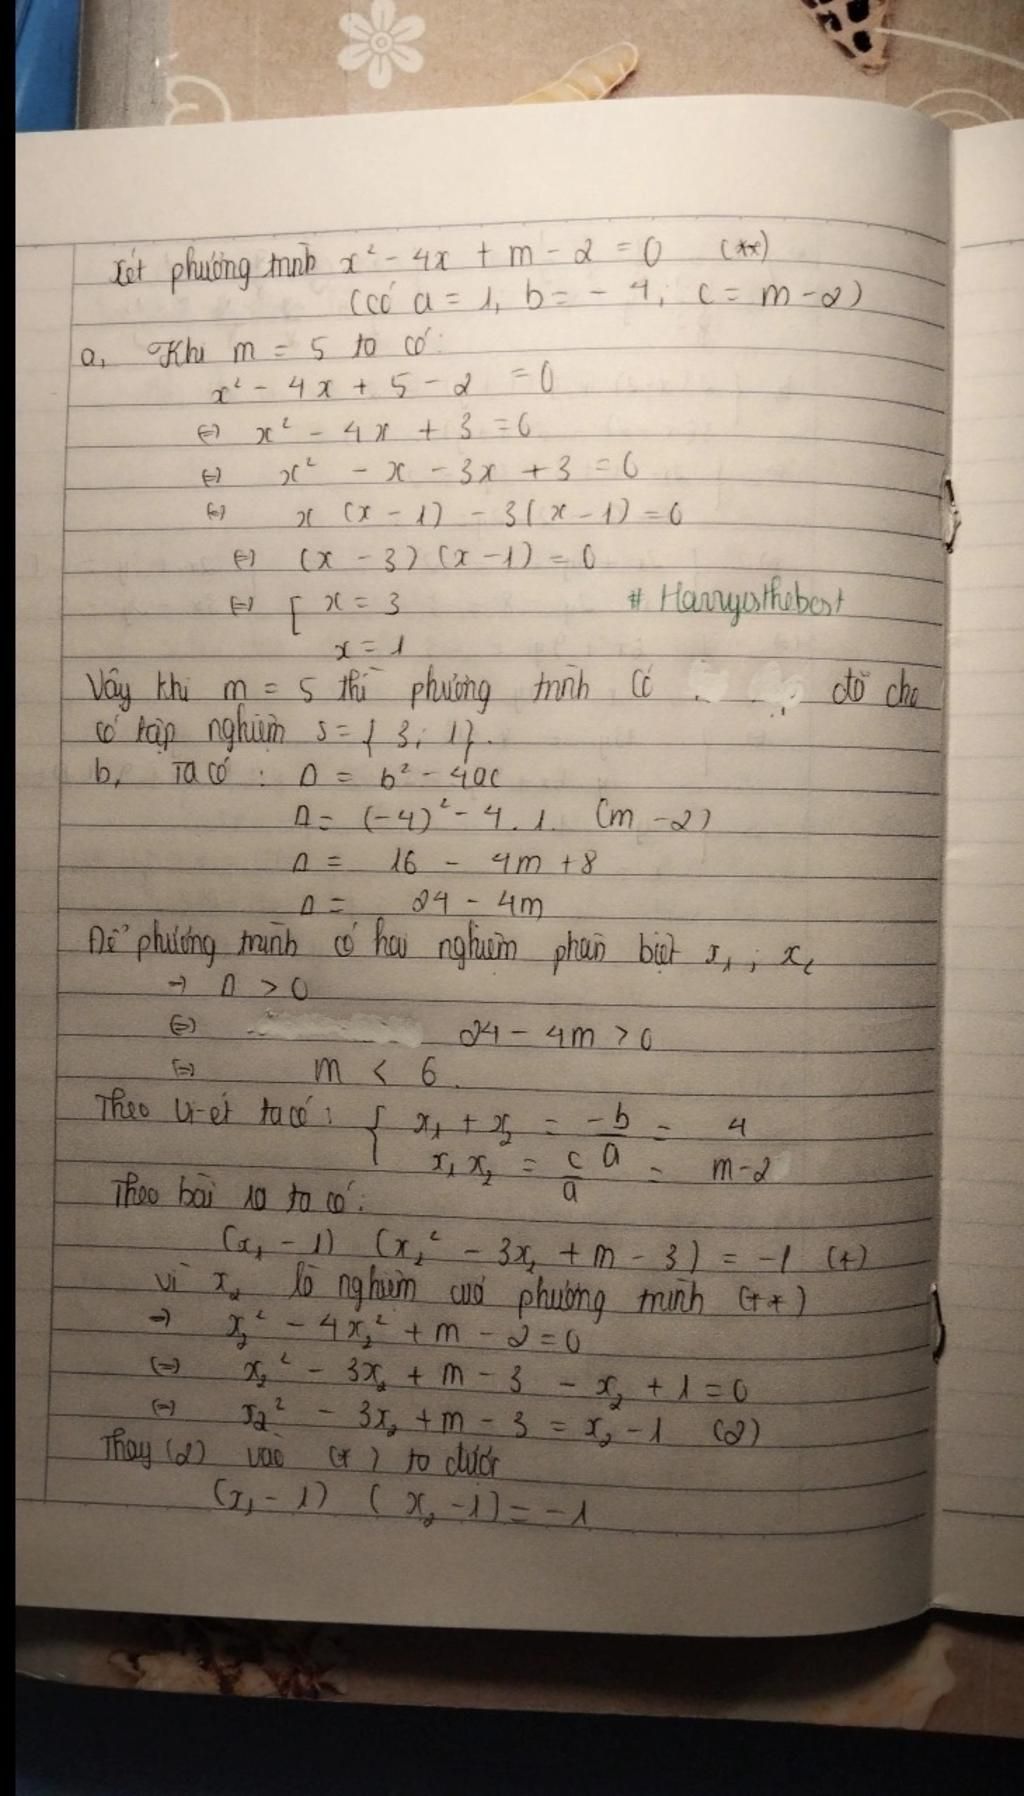 Xét phương trình x² - 4x + m - 2 = 0 (**)
(có a = 1, b = - 4; c = m - 2)
a, Khi m = 5 ta có:
x² - 4x + 5 - 2 = 0
⇔ x² - 4x + 3 = 0
⇔ x² - x - 3x + 3 = 0
⇔ x (x - 1) - 3(x - 1) = 0
⇔ (x - 3) (x - 1) = 0
⇔ [ x = 3
# Harryisthebest
x = 1
Vậy khi m = 5 thì phương trình có đã cho
có tập nghiệm S = { 3; 1}.
b, Ta có : Δ = b² - 4ac
Δ = (-4)² - 4 . 1. (m - 2)
Δ = 16 - 4m + 8
Δ = 24 - 4m
Để phương trình có hai nghiệm phân biệt x₁ ; x₂
→ Δ > 0
⇔ 24 - 4m > 0
⇔ m < 6.
Theo Vi-ét ta có : { x₁ + x₂ = -b/a = 4
x₁ x₂ = c/a = m - 2
Theo bài ra ta có:
(x₁ - 1) (x₂² - 3x₂ + m - 3) = -1 (*)
Vì x₂ là nghiệm của phương trình (**)
→ x₂² - 4x₂² + m - 2 = 0
⇔ x₂² - 3x₂ + m - 3 - x₂ + 1 = 0
⇔ x₂² - 3x₂ + m - 3 = x₂ - 1 (2)
Thay (2) vào (*) ta được
(x₁ - 1) ( x₂ - 1) = - 1